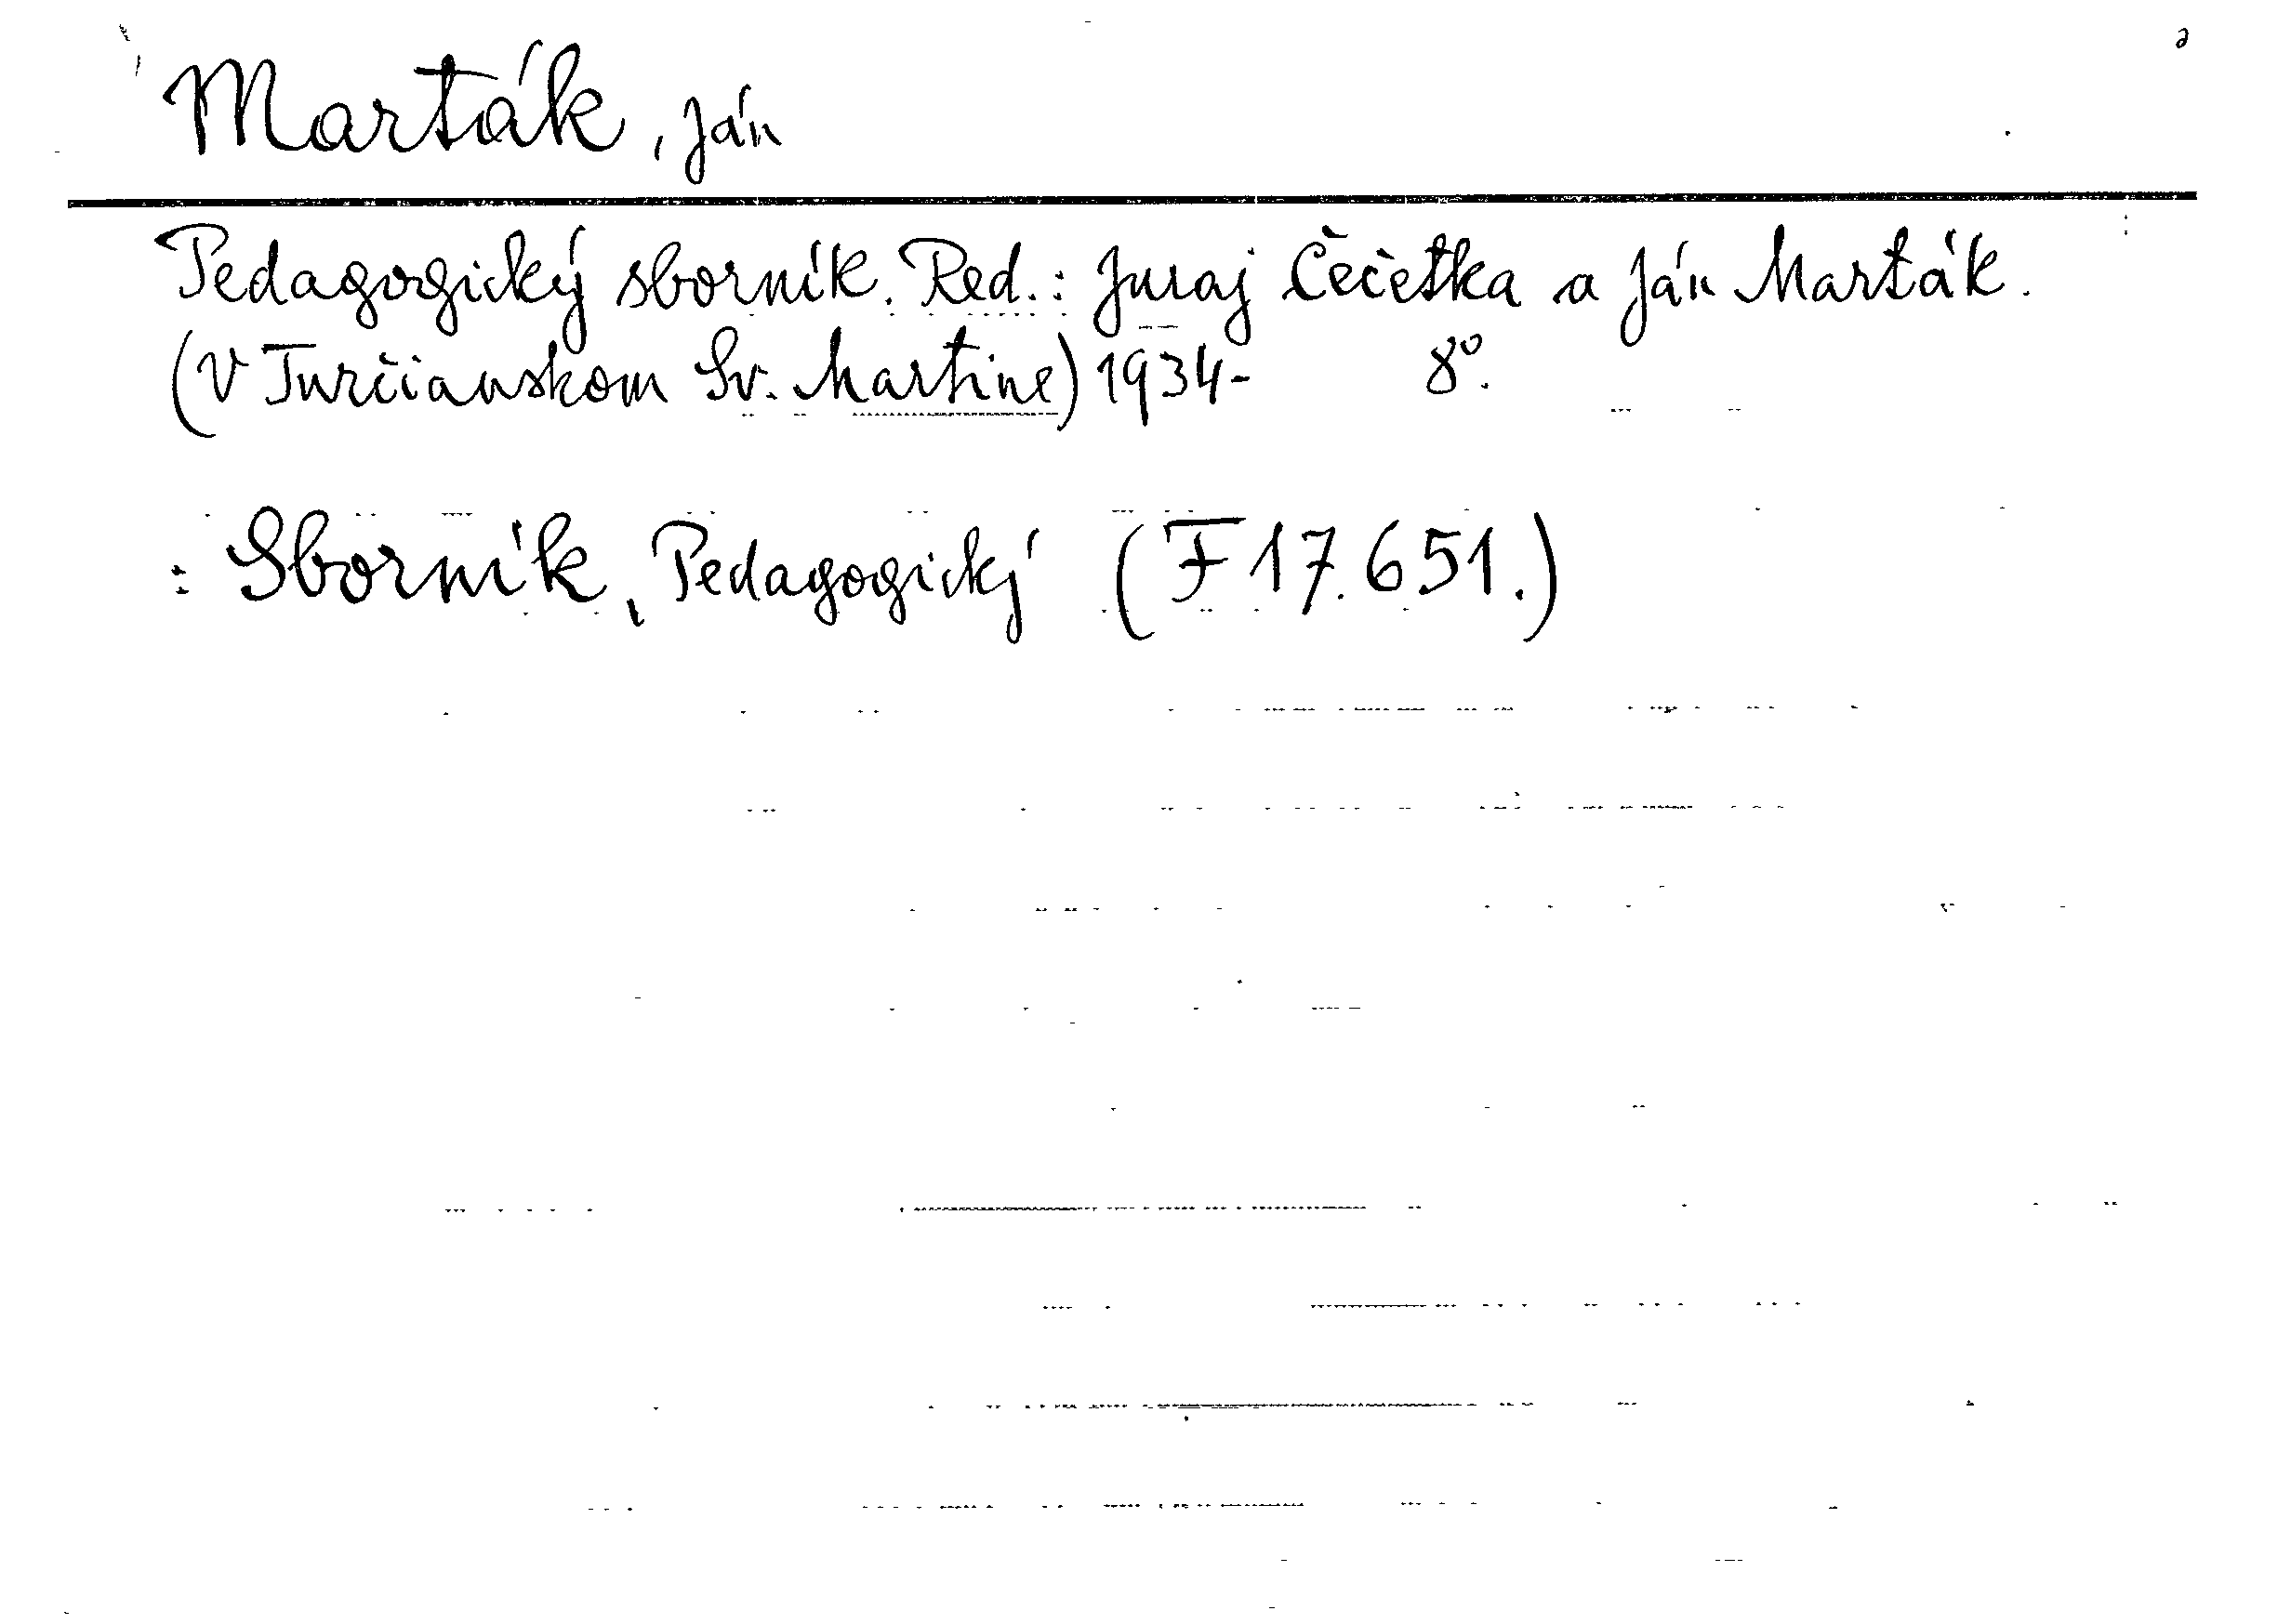 Marták, Ján
Pedagogický sborník. Red.: Juraj Čečetka a Ján Marták.
(V Turčianskom Sv. Martine) 1934- 8°.
: Sborník, Pedagogický (F 17.651.)